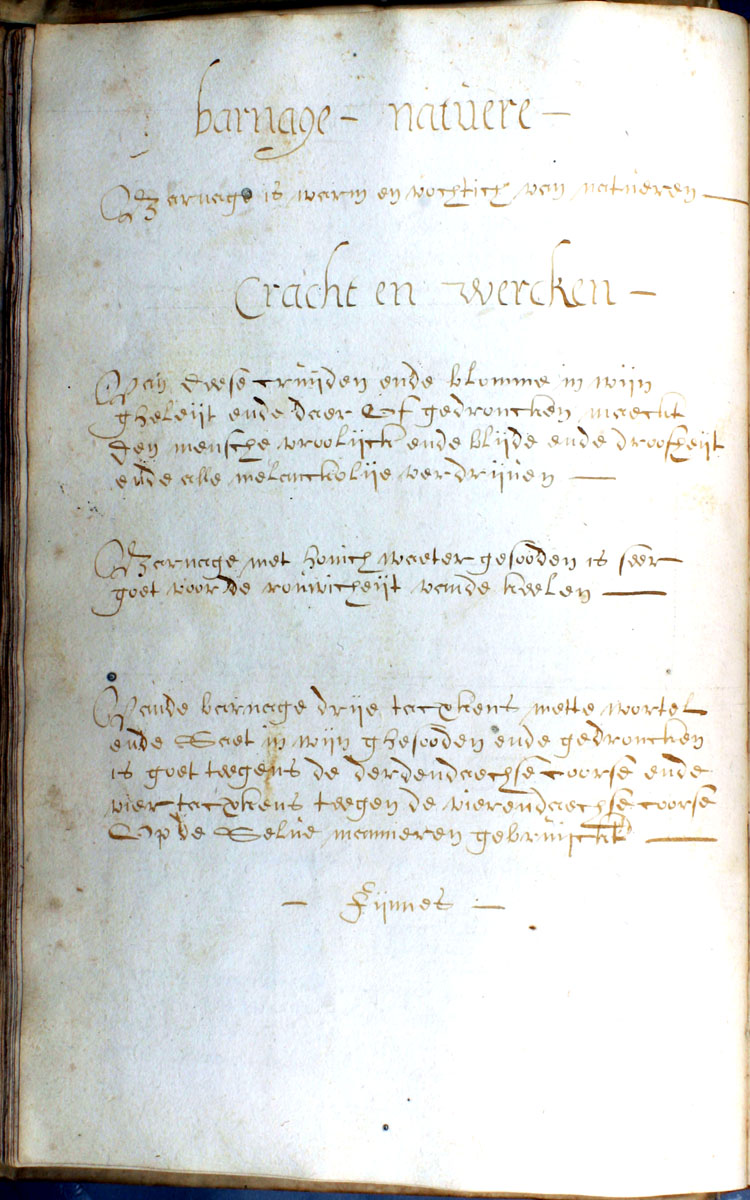 barnage – natuere –
Barnage is warm en vochtich van natueren —
Cracht en wercken –
Van deese cruijden ende blomme in wijn
gheleijt ende daer Of gedroncken maeckt
den mensche vroolijck ende blijde ende droefheijt
ende alle melanckolije verdrijven —
Barnage met honich waeter gesooden is seer
goet voor de rouwicheijt vande keelen —
Vande barnage drije tacxkens mette wortel
ende Saet in wijn ghesooden ende gedroncken
is goet teegens de derdendaechse coorse ende
vier tacxkens teegen de vierendaechse coorse
Op de Selve mannieren gebruijckt —
– Fijnnes –